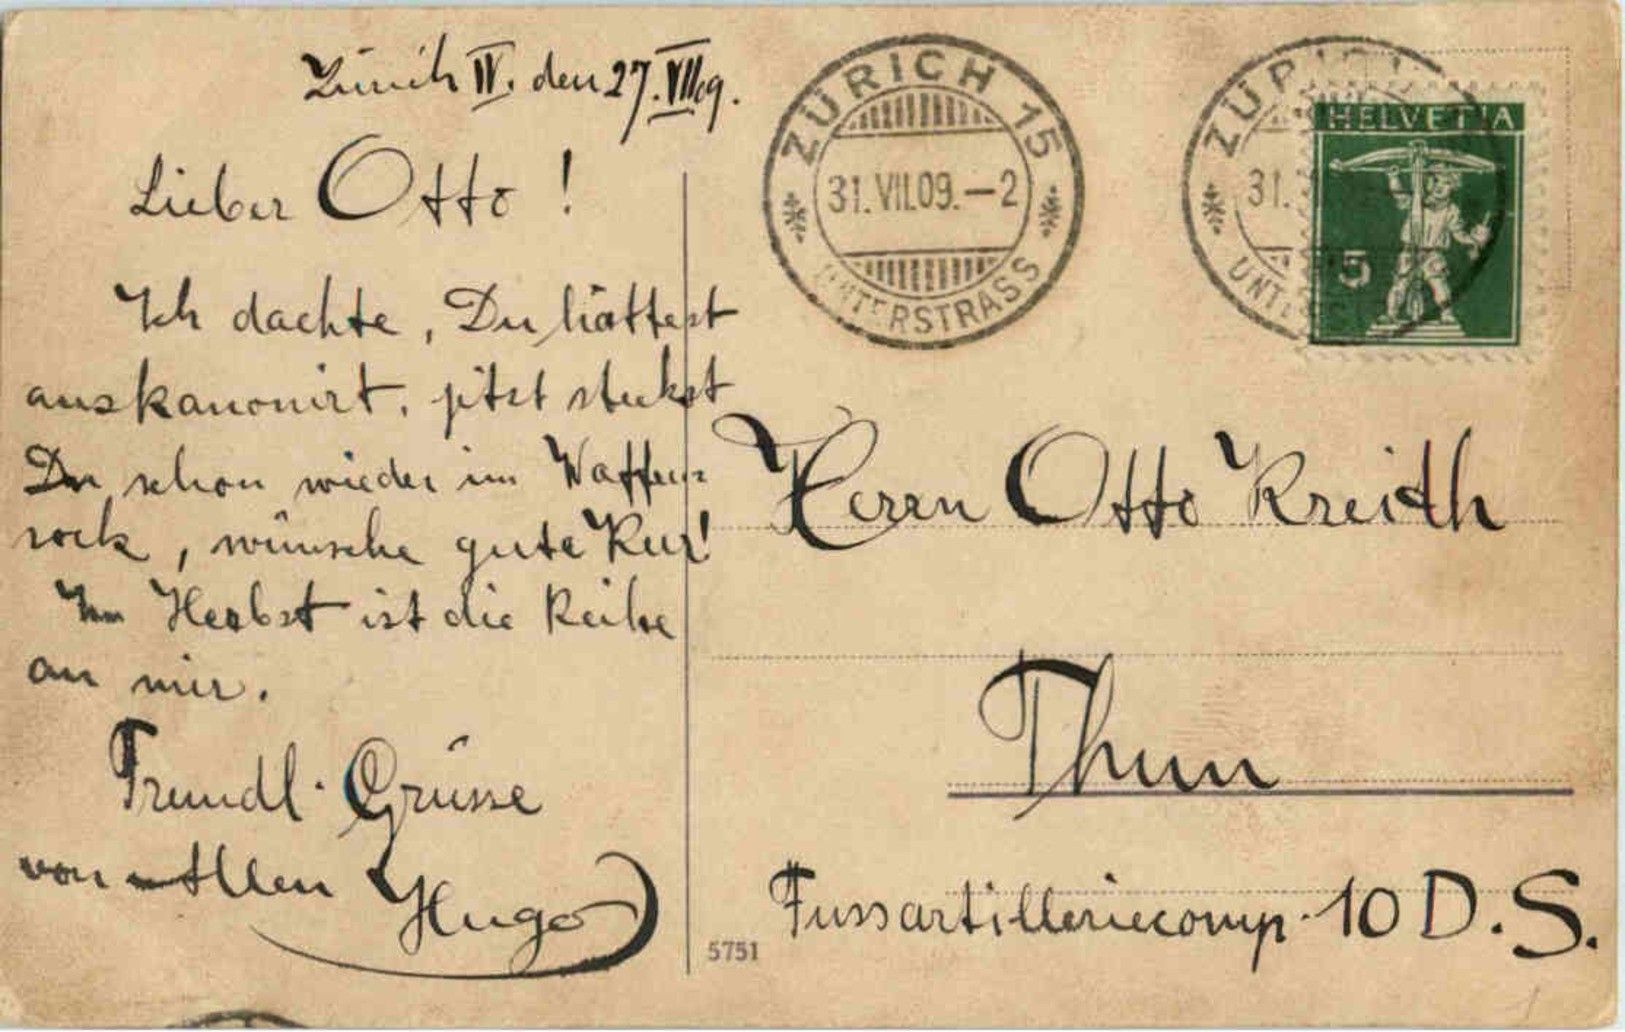 Zürich IV. den 27. VII 09.
Lieber Otto !
Ich dachte, Du hättest
auskanonirt, jetzt steckst
Du schon wieder im Waffen=
rock, wünsche gute Kur!
Im Herbst ist die Reihe
an mir.
Freundl. Grüsse
von Allen
Hugo
ZÜRICH 15
31.VII.09.—2
UNTERSTRASS
HELVETIA
5
Herrn Otto Kreith
Thun
Fussartilleriecomp. 10 D.S.
5751